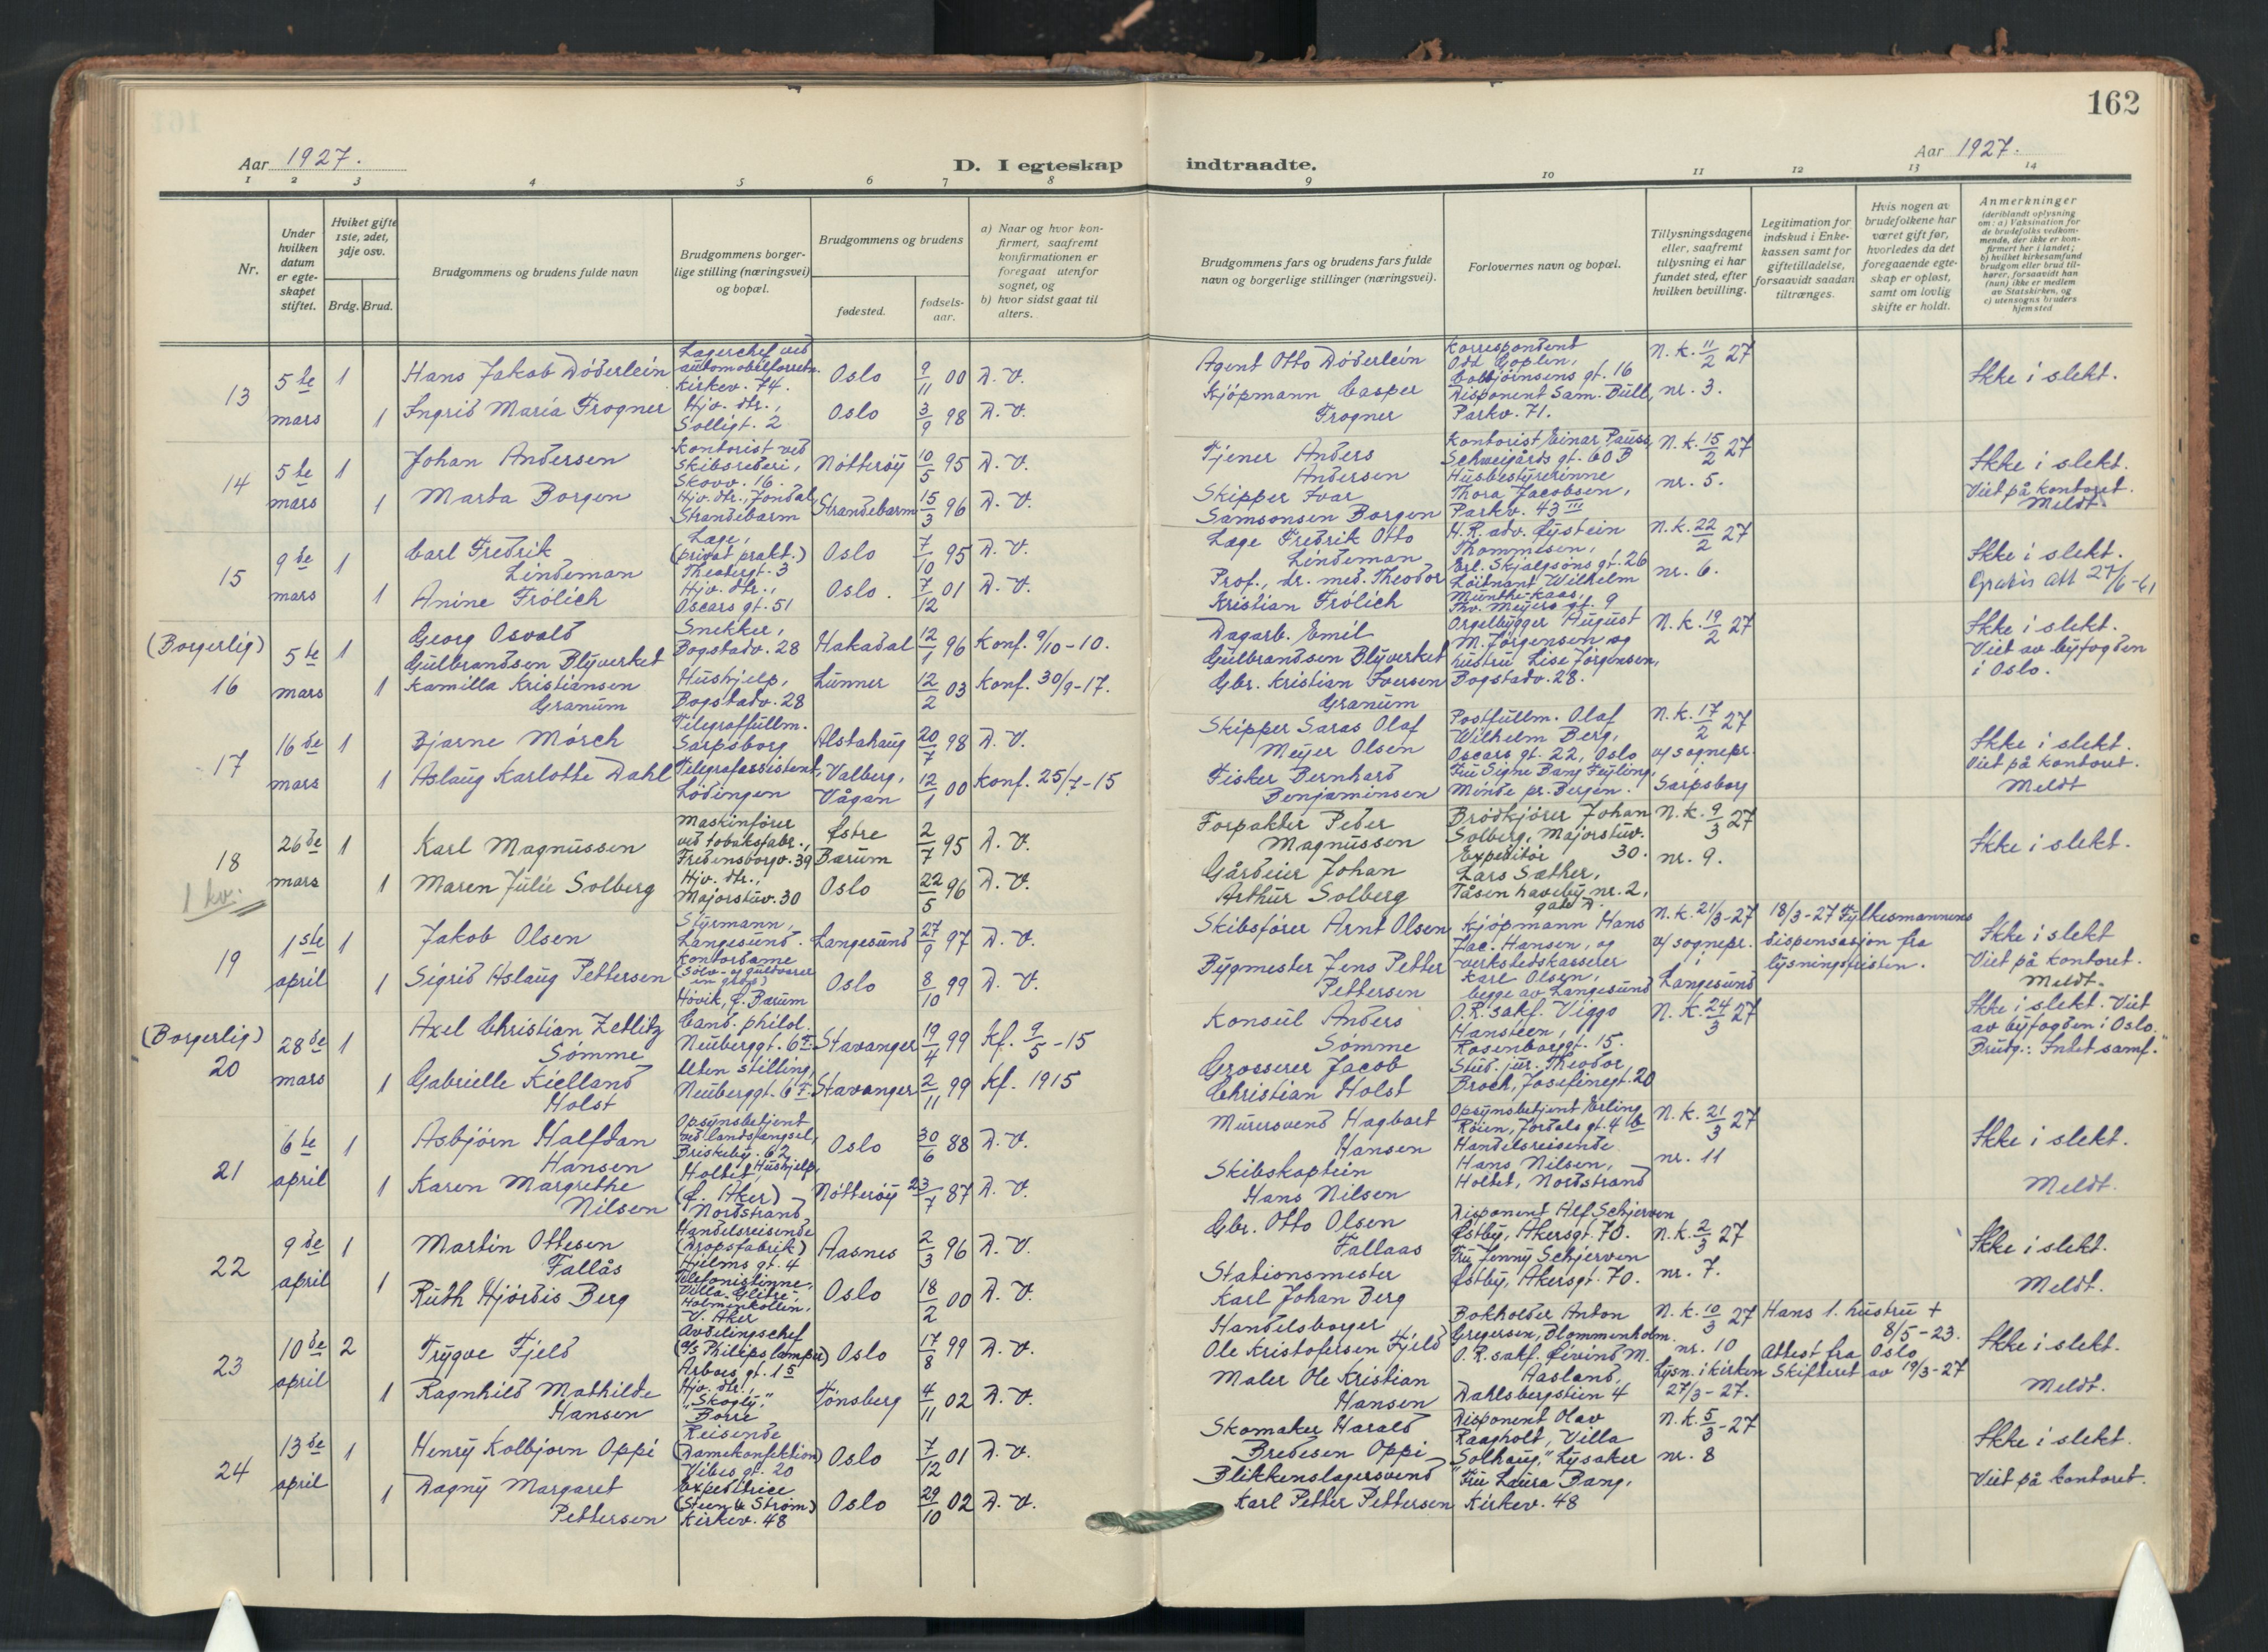 162
Aar 1927.
D. I egteskap indtraadte.
Aar 1927.
1 2 3 4 5 6 7 8 9 10 11 12 13 14
Nr.
Under hvilken datum er egteskapet stiftet.
Hviket gifte 1ste, 2det, 3dje osv.
Brdg. Brud.
Brudgommens og brudens fulde navn
Brudgommens borgerlige stilling (næringsvei) og bopæl.
Brudgommens og brudens
fødested.
fødselsaar.
a) Naar og hvor konfirmert, saafremt konfirmationen er foregaat utenfor sognet, og
b) hvor sidst gaat til alters.
Brudgommens fars og brudens fars fulde navn og borgerlige stillinger (næringsvei).
Forlovernes navn og bopæl.
Tillysningsdagene eller, saafremt tillysning ei har fundet sted, efter hvilken bevilling.
Legitimation for indskud i Enkekassen samt for giftetilladelse, forsaavidt saadan tiltrænges.
Hvis nogen av brudefolkene har været gift før, hvorledes da det foregaaende egteskap er opløst, samt om lovlig skifte er holdt.
Anmerkninger
(deriblandt oplysning om: a) Vaksination for de brudefolks vedkommende, der ikke er konfirmert her i landet;
b) hvilket kirkesamfund brudgom eller brud tilhører, forsaavidt han (hun) ikke er medlem av Statskirken, og
c) utensogns bruders hjemsted
13
5te mars
1
Hans Jakob Døderlein
Lagerchef ved automobilforretn. Kirkev. 74.
Oslo
9/11 00
D. V.
Agent Otto Døderlein
Korrespondent Odd Goplen, Colbjørnsens gt. 16
N. k. 11/2 27
Ikke i slekt.
1
Ingrid Maria Frogner
Hjv. dtr., Solligt. 2
Oslo
3/9 98
D. V.
Kjøpmann Casper Frogner
Disponent Sam. Bull, Parkv. 71.
nr. 3.
14
5te mars
1
Johan Andersen
Kontorist ved Skibsrederi, Skovv. 16.
Nøtterøy
10/5 95
D. V.
Tjener Anders Andersen
Kontorist Einar Pauss, Schweigårds gt. 60 B
N. k. 15/2 27
Ikke i slekt.
Viet på kontoret.
Meldt.
1
Marta Borgen
Hjv. dtr., Jondal, Strandebarm
Strandebarm
15/3 96
D. V.
Skipper Ivar Samsonsen Borgen
Husbestyrerinne Thora Jacobsen, Parkv. 43 III
nr. 5.
15
9de mars
1
Carl Fredrik Lindeman
Læge, (privat prakt.) Theatergt. 3
Oslo
7/10 95
D. V.
Læge Fredrik Otto Lindeman
H.R. adv. Øystein Thommesen, Erl. Skjalgsøns gt. 26
N. k. 22/2 27
Ikke i slekt.
Gratis att 27/6-41
1
Anine Frølich
Hjv. dtr., Oscars gt. 51
Oslo.
7/12 01
D. V.
Prof., dr. med. Theodor Kristian Frølich
Løitnant Wilhelm Munthe-Kaas, Thv. Meyers gt. 9
nr. 6.
(Borgerlig)
16
5te mars
1
Georg Osvald Gulbrandsen Blyverket
Snekker, Bogstadv. 28
Hakadal
12/1 96
Konf. 9/10-10.
Dagarb. Emil Gulbrandsen Blyverket
Orgelbygger August M. Jørgensen og hustru Lise Jørgensen, Bogstadv. 28.
N. k. 19/2 27
Ikke i slekt.
Viet av byfogden i Oslo.
1
Kamilla Kristiansen Granum
Hushjelp, Bogstadv. 28
Lunner
12/2 03
Konf. 30/9-17.
Gbr. Kristian Iversen Granum
17
16de mars
1
Bjarne Mørch
Telegraffullm. Sarpsborg
Alstahaug
20/7 98
D. V.
Skipper Saras Olaf Meyer Olsen
Postfullm. Olaf Wilhelm Berg, Oscars gt. 22, Oslo
N. k. 17/2 27
v/ sognepr. i Sarpsborg
Ikke i slekt.
Viet på kontoret.
Meldt
1
Aslaug Karlotte Dahl
Telegrafassistent, Lødingen
Valberg, Vågan
12/1 00
Konf. 25/7-15
Fisker Bernhard Benjaminsen
Fru Signe Bang Feyling, Minde pr. Bergen.
18
1 kv.
26de mars
1
Karl Magnussen
Maskinfører ved tobaksfabr., Fredensborgv. 39
Østre Bærum
2/7 95
D. V.
Forpakter Peder Magnussen
Brødkjører Johan Solberg, Majorstuv. 30.
N. k. 9/3 27
Ikke i slekt.
1
Maren Julie Solberg
Hjv. dtr., Majorstuv. 30
Oslo
22/5 96
D. V.
Gårdeier Johan Arthur Solberg
Expeditør Lars Sæther, Tåsen haveby nr. 2,
nr. 9.
19
1ste april
1
Jakob Olsen
Styrmann, Langesund.
Langesund
27/9 97
D. V.
Skibsfører Arnt Olsen
Kjøpmann Hans Jac. Hansen, og verkstedskasserer Karl Olsen, begge av Langesund
N. k. 21/3-27
v/ sognepr. i Langesund
18/3-27 Fylkesmannens dispensasjon fra lysningsfristen.
Ikke i slekt
Viet på kontoret.
Meldt.
1
Sigrid Aslaug Pettersen
Kontordame (Sølv- og guldvarer en gros) Høvik, Ø. Bærum
Oslo
8/10 99
D. V.
Bygmester Jens Petter Pettersen
(Borgerlig)
20
28de mars
1
Axel Christian Zetlitz Sømme
Cand. philol. Neuberggt. 6 I.
Stavanger
19/4 99
Kf. 9/5-15
Konsul Anders Sømme
O.R. sakf. Viggo Hansteen, Rosenborggt. 15.
N. k. 24/3 27
Ikke i slekt. Viet av byfogden i Oslo.
Brudg.: Intet samf."
1
Gabrielle Kielland Holst
Uten stilling, Neuberggt. 6 I.
Stavanger
2/11 99
Kf. 1915
Grosserer Jacob Christian Holst
Stud. jur. Theodor Broch, Josefinegt. 20
21
6te april
1
Asbjørn Halfdan Hansen
Opsynsbetjent ved landsfængsel, Briskeby. 62
Oslo
30/6 88
D. V.
Murersvend Hagbart Hansen
Opsynsbetjent Erling Røien, Jordals gt. 4 b
N. k. 21/3 27
Ikke i slekt.
1
Karen Margrethe Nilsen
Hushjelp, Holtet, (Ø. Aker) Nordstrand
Nøtterøy
23/7 87
D. V.
Skibskaptein Hans Nilsen
Handelsreisende Hans Nilsen, Holtet, Nordstrand
nr. 11
Meldt.
22
9de april
1
Martin Ottesen Fallås
Handelsreisende (Dropsfabrik) Hjelms gt. 4
Aasnes
2/3 96
D. V.
Gbr. Otto Olsen Fallaas
Disponent Alf Schjerven Østby, Akersgt. 70.
N. k. 2/3 27
Ikke i slekt.
1
Ruth Hjørdis Berg
Telefonistinne, Villa Glitre, Holmenkollen, V. Aker
Oslo
18/2 00
D. V.
Stationsmester Karl Johan Berg
Fru Jenny Schjerven Østby, Akersgt. 70.
nr. 7.
Meldt.
23
10de april
2
Trygve Fjeld
Avdelingschef (A/S Philipslamper) Arboes gt. 1 5
Oslo
17/8 99
D. V.
Handelsborger Ole Kristofersen Fjeld
Bokholder Anton Gregersen, Blommenholm.
N. k. 10/3 27
nr. 10
Hans 1. hustru + 8/5-23.
Attest fra Oslo Skifteret av 19/3-27
Ikke i slekt.
1
Ragnhild Mathilde Hansen
Hjv. dtr., "Skogly," Borre
Tønsberg
4/11 02
D. V.
Maler Ole Kristian Hansen
O. R. sakf. Eivind M. Aasland, Dahlsbergstien 4
Lysn. i kirken 27/3-27.
Meldt.
24
13de april
1
Henry Kolbjørn Oppi
Reisende (Damekonfektion) Vibes gt. 20
Oslo
7/12 01
D. V.
Skomaker Harald Bredesen Oppi
Disponent Olav Raagholt, Villa "Solhaug," Lysaker
N. k. 5/3-27
Ikke i slekt.
1
Dagny Margaret Pettersen
Expeditrice (Steen & Strøm) Kirkev. 48
Oslo
29/10 02
D. V.
Blikkenslagersvend Karl Petter Pettersen
Fru Laura Bang, Kirkev. 48
nr. 8
Viet på kontoret.